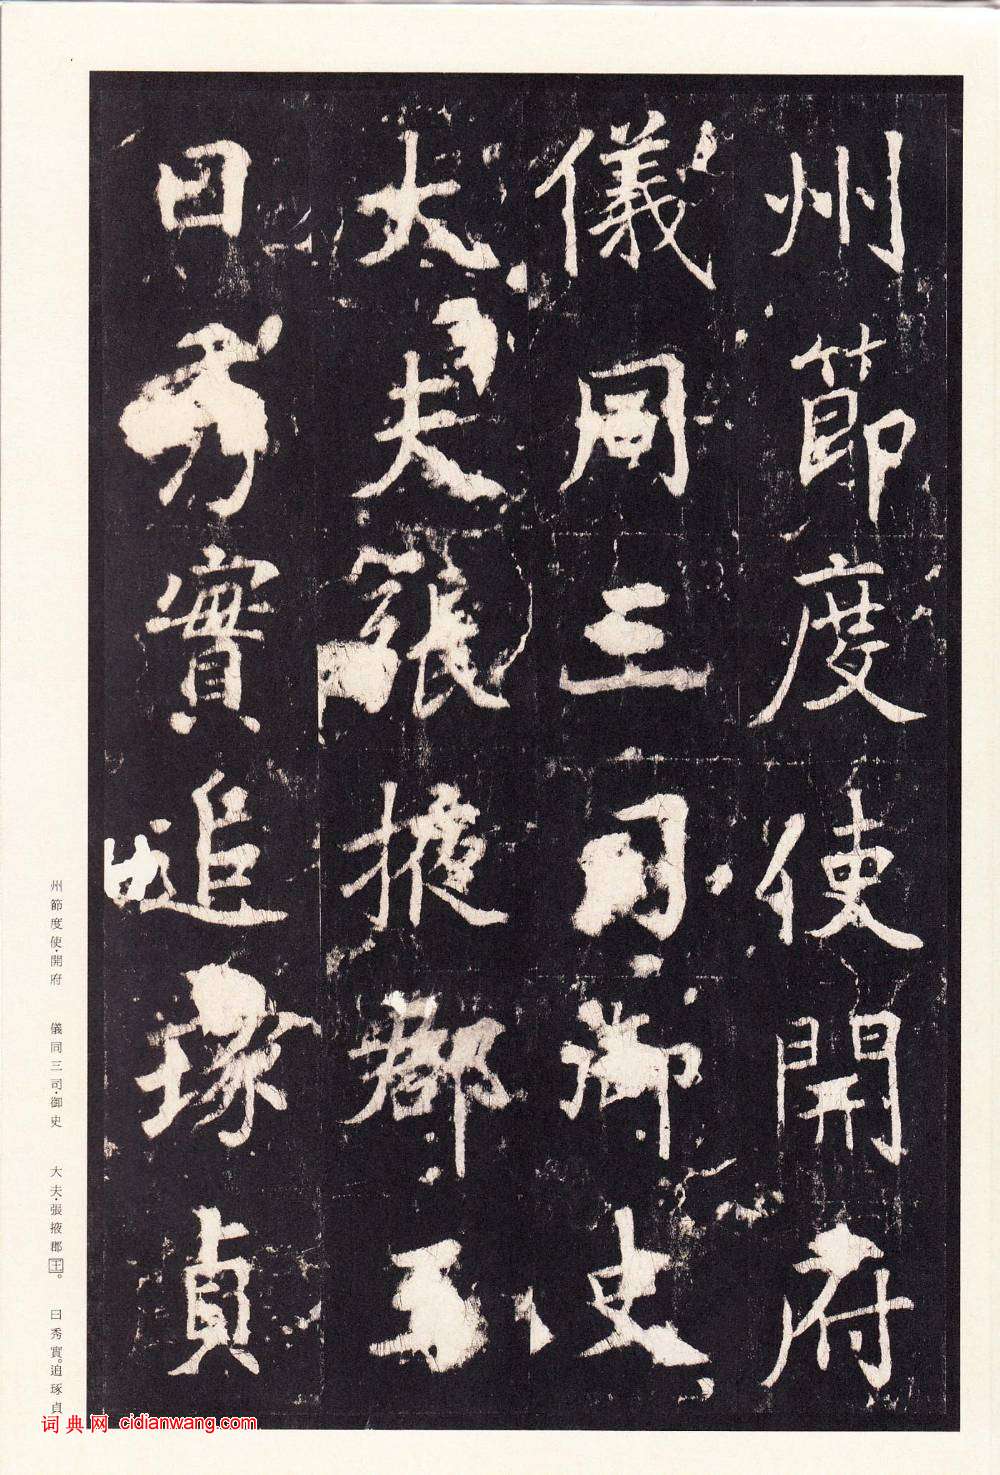 州節度使開府
儀同三司御史
大夫張掖郡王
曰秀實追琢貞
州節度使·開府　儀同三司·御史　大夫·張掖郡王。　曰秀實。追琢貞
词典网 cidianwang.com